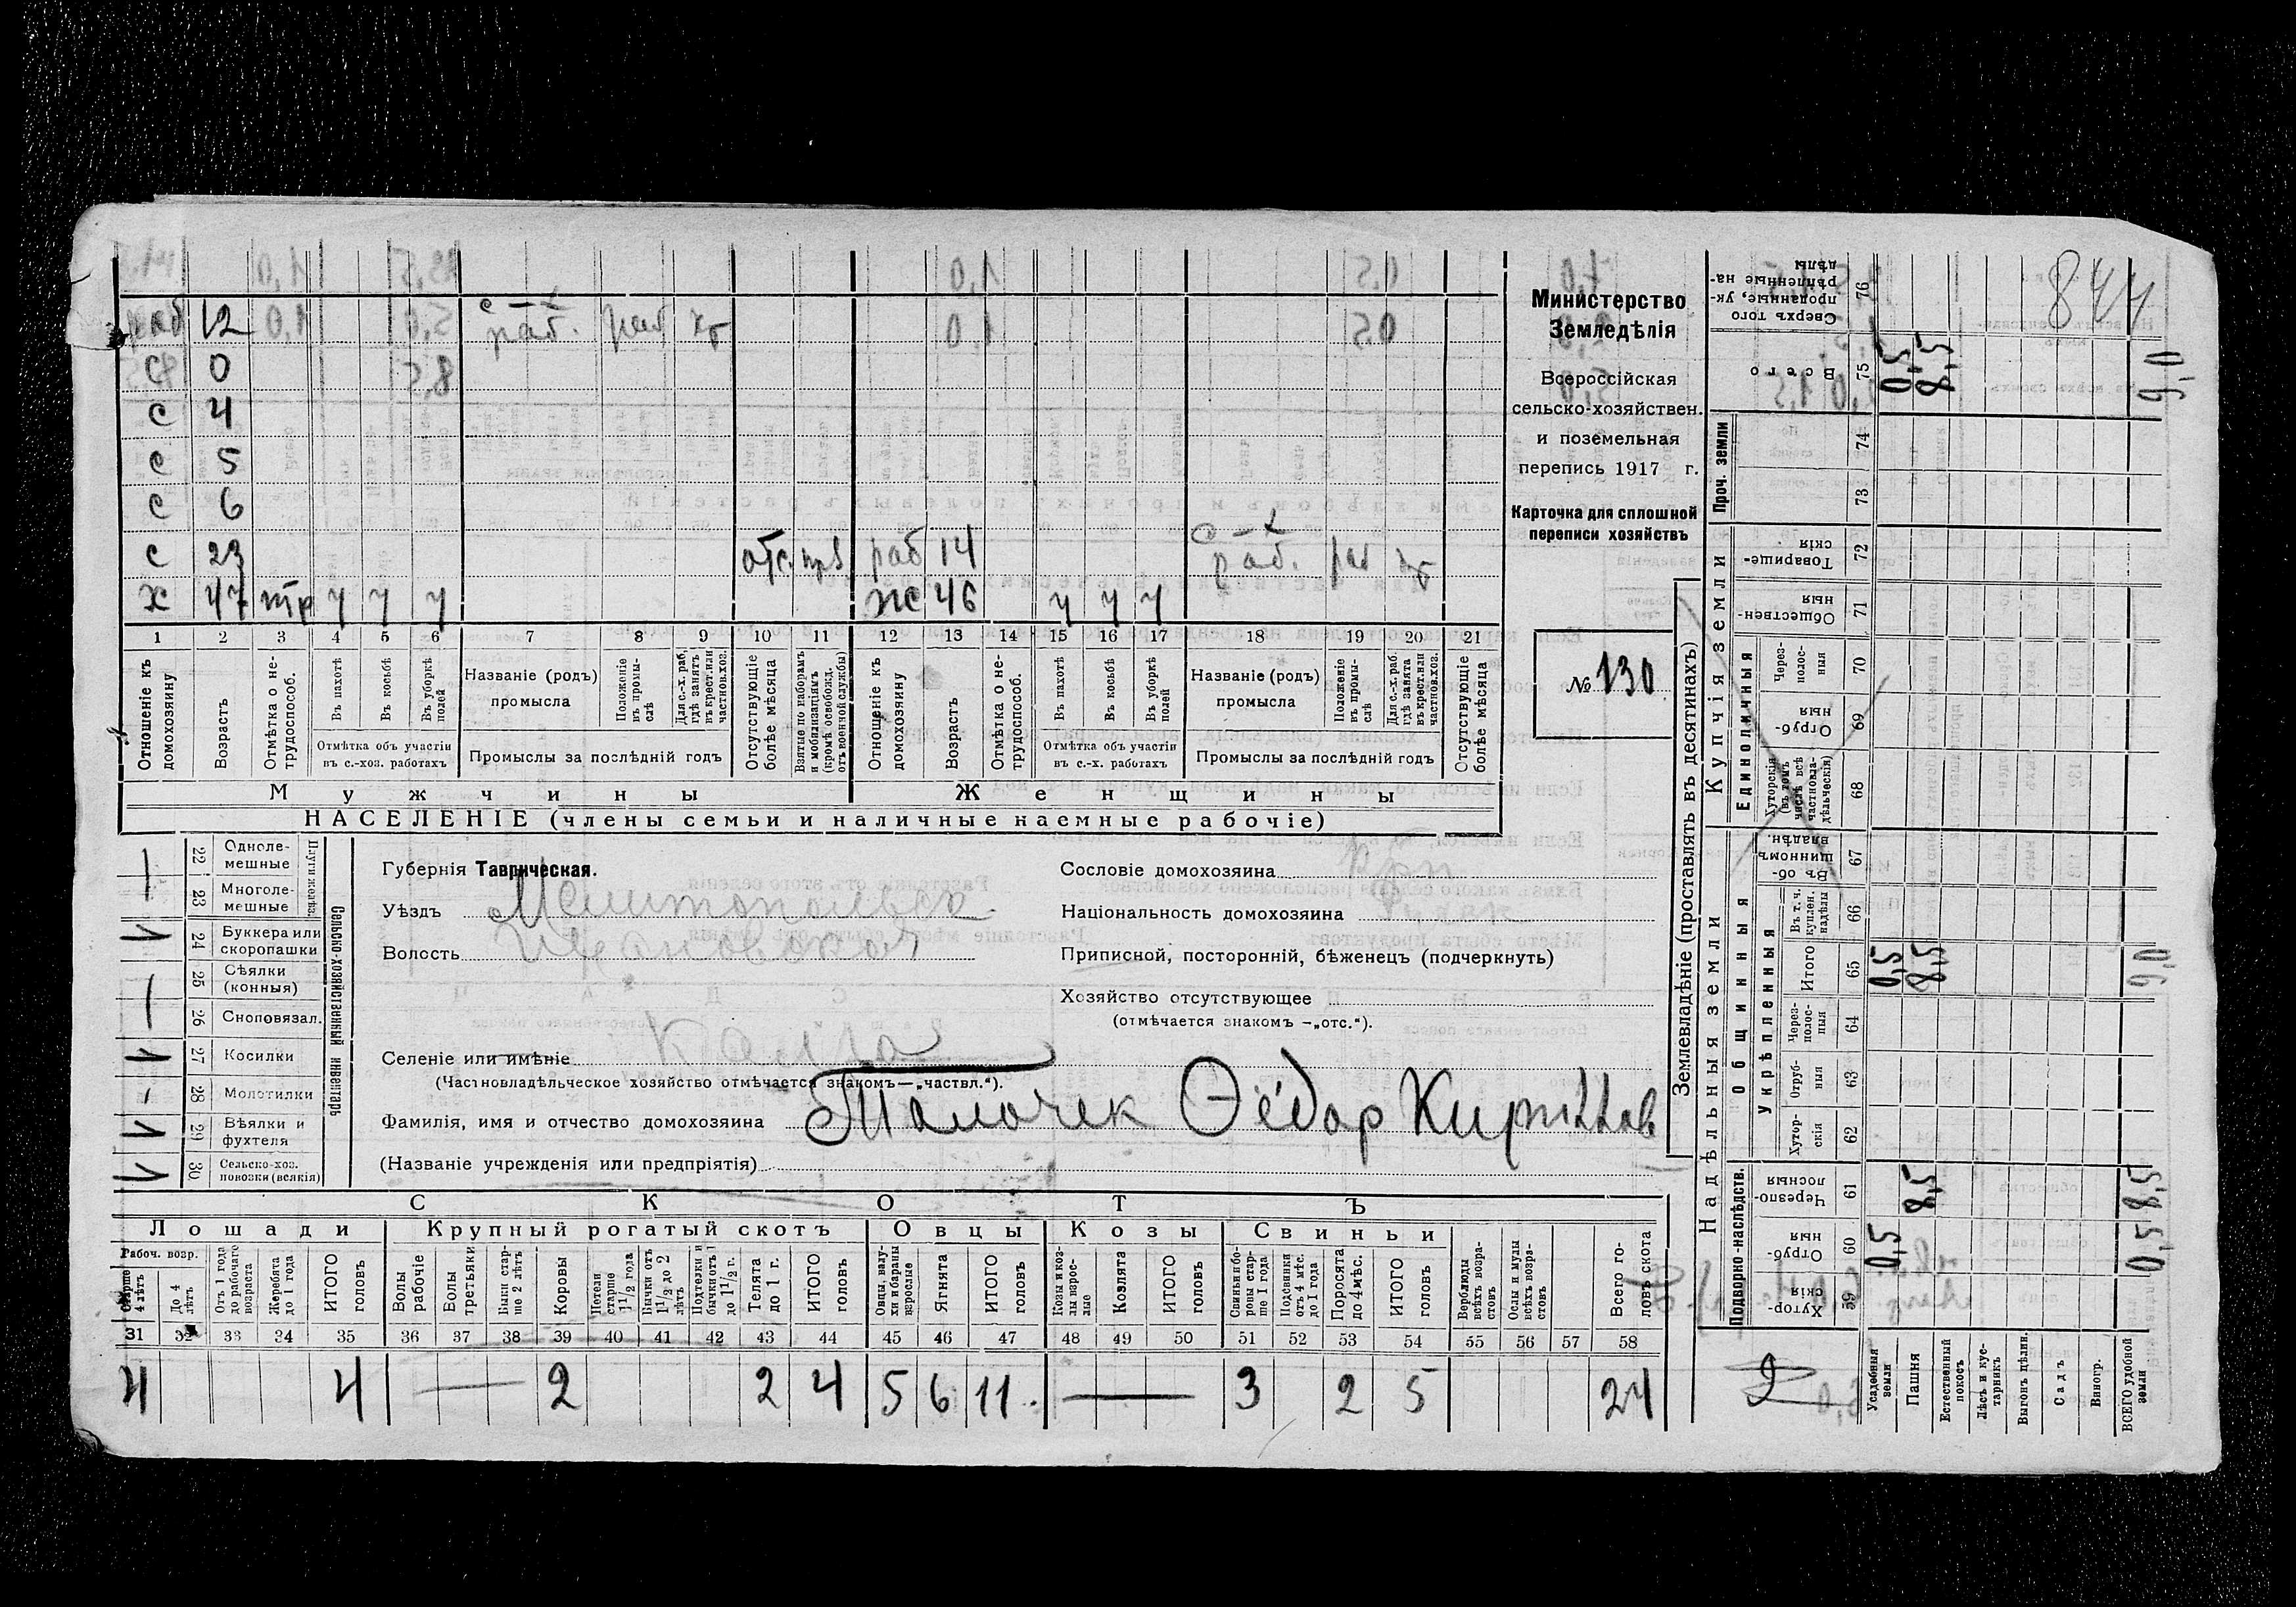 844
раб 12 с-х раб. раб хб
с 0
с 4
с 5
с 6
с 23 отс. раб 14 с-х раб. раб
х 47 тр ч ч ч ж 46 ч ч ч
1 2 3 4 5 6 7 8 9 10 11 12 13 14 15 16 17 18 19 20 21
Отношеніе къ домохозяину
Возрастъ
Отмѣтка о не-трудоспособ.
Въ пахотѣ
Въ косьбѣ
Въ уборкѣ полей
Отмѣтка объ участіи въ с.-хоз. работахъ
Названіе (родъ) промысла
Положеніе въ промы-слѣ
Для с.-х. раб, гдѣ занятъ въ крест. или частнов. хоз.
Промыслы за послѣдній годъ
Отсутствующіе болѣе мѣсяца
Взятые по наборамъ и мобилизаціямъ (кромѣ освобожд. отъ военной службы)
Отношеніе къ домохозяину
Возрастъ
Отмѣтка о не-трудоспособ.
Въ пахотѣ
Въ косьбѣ
Въ уборкѣ полей
Отмѣтка объ участіи въ с.-х. работахъ
Названіе (родъ) промысла
Положеніе въ промы-слѣ
Для с.-х. раб. гдѣ занята въ крест. или частнов. хоз.
Промыслы за послѣдній годъ
Отсутствующіе болѣе мѣсяца
Мужчины Женщины
НАСЕЛЕНІЕ (члены семьи и наличные наемные рабочіе)
Министерство
Земледѣлія
Всероссійская
сельско-хозяйствен.
и поземельная
перепись 1917 г.
Карточка для сплошной
переписи хозяйствъ
№ 130
22 Одноле-мешные
23 Многоле-мешные
Плуги желѣз.
24 Буккера или скоропашки
25 Сѣялки (конныя)
26 Сноповязал.
27 Косилки
28 Молотилки
29 Вѣялки и фухтеля
30 Сельско-хоз. повозки (всякія)
Сельско-хозяйственный инвентарь
Губернія Таврическая.
Уѣздъ Мелитопольск
Волость
Селеніе или имѣніе
(Частновладѣльческое хозяйство отмѣчается знакомъ—„частвл.“).
Фамилія, имя и отчество домохозяина Ѳёдор
(Названіе учрежденія или предпріятія)
Сословіе домохозяина
Національность домохозяина
Приписной, посторонній, бѣженец (подчеркнуть)
Хозяйство отсутствующее
(отмѣчается знакомъ —„отс.“).
СКОТЪ
Лошади Крупный рогатый скотъ Овцы Козы Свиньи
Рабоч. возр.
Старше 4 лѣтъ
До 4 лѣтъ
Отъ 1 года до рабочаго возраста
Жеребята до 1 года
ИТОГО головъ
Волы рабочіе
Волы третьяки
Быки стар-ше 2 лѣтъ
Коровы
Нетели старше 1½ года
Бычки отъ 1½ до 2 лѣтъ
Подтелки и бычки отъ 1 до 1½ г.
Телята до 1 г.
ИТОГО головъ
Овцы, валу-хи и бараны взрослые
Ягнята
ИТОГО головъ
Козы и коз-лы взрос-лые
Козлята
ИТОГО головъ
Свиньи и бо-ровы стар-ше 1 года
Подсвинки отъ 4 мѣс. до 1 года
Поросята до 4 мѣс.
ИТОГО головъ
Верблюды всѣхъ возра-стовъ
Ослы и мулы всѣхъ возра-стовъ
Всего го-ловъ скота
31 32 33 34 35 36 37 38 39 40 41 42 43 44 45 46 47 48 49 50 51 52 53 54 55 56 57 58
4 4 — 2 2 4 5 6 11. — 3 2 5 24
Землевладѣніе (проставлять въ десятинахъ)
Надѣльныя земли Купчія земли Проч. земли
Подворно-наслѣдств. Общинныя Укрѣпленныя Единоличныя
Хутор-скія 59
Отруб-ныя 60 0,5 0,5
Черезпо-лосныя 61 8,5 8,5
Хутор-скія 62
Отруб-ныя 63
Через-полос-ныя 64
Итого 65 0,5 8,5 9,0
Въ т. ч. куплен. надѣлы 66
Въ об-щинномъ владѣн. 67
Хуторскія (въ томъ числѣ всѣ частновла-дѣльческія) 68
Отруб-ныя 69
Через-полос-ныя 70
Обществен-ныя 71
Товарище-скія 72
73
74
Всего 75 0,5 8,5 9,0
Сверхъ того проданные, ук-рѣпленные на-дѣлы 76
2
Усадебныя земли
Пашня
Естественный покосъ
Лѣсъ и кус-тарникъ
Выгонъ цѣлин.
Садъ
Виногр.
ВСЕГО удобной земли